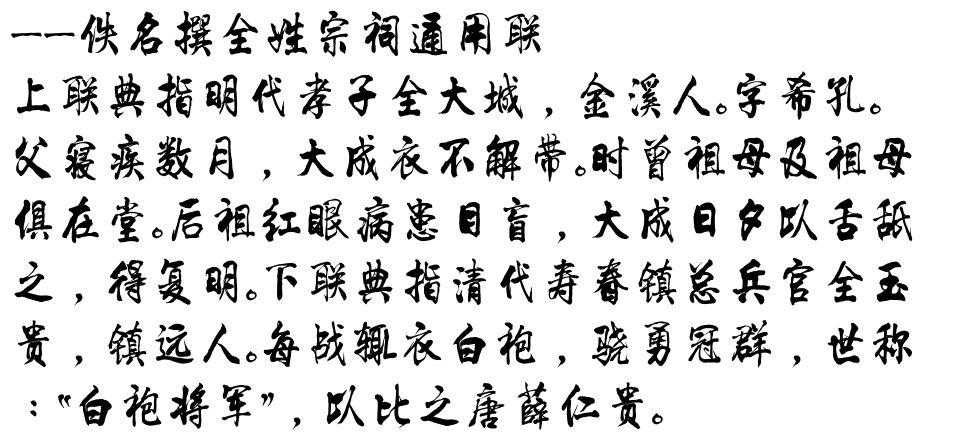 ——佚名撰全姓宗祠通用联
上联典指明代孝子全大城，金溪人。字希孔。
父寝疾数月，大成衣不解带。时曾祖母及祖母
俱在堂。后祖红眼病患目盲，大成日夕以舌舐
之，得复明。下联典指清代寿春镇总兵官全玉
贵，镇远人。每战辄衣白袍，骁勇冠群，世称
：“白袍将军”，以比之唐薛仁贵。